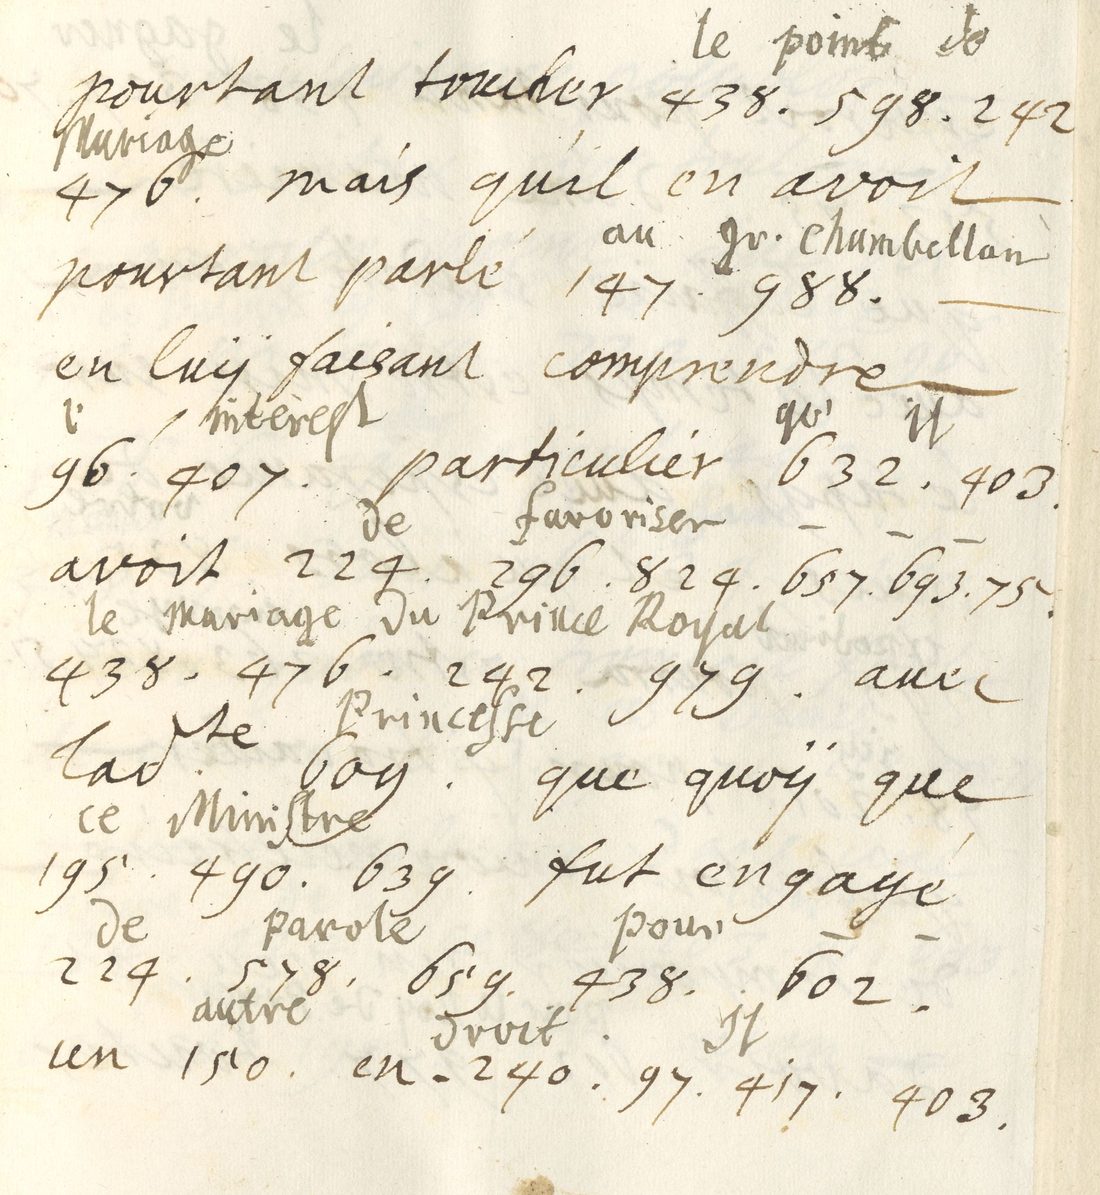 le point de
pourtant toucher 438. 598. 242
Mariage
476. mais qu'il en avoit
au gr. Chambellan
pourtant parlé 147. 988.
en luÿ faisant comprendre
l' interest qu' il
96. 407. particulier 632. 403.
de favoriser
avoit 224. 296. 824. 657. 693. 75.
le Mariage du Prince Royal
438. 476. 242. 979. avec
Princesse
lad.te 609. que quoÿ que
ce Ministre
195. 490. 639. fut engagé
de parole pour
224. 578. 659. 438. 602.
autre droit il
un 150. en. 240. 97. 417. 403.